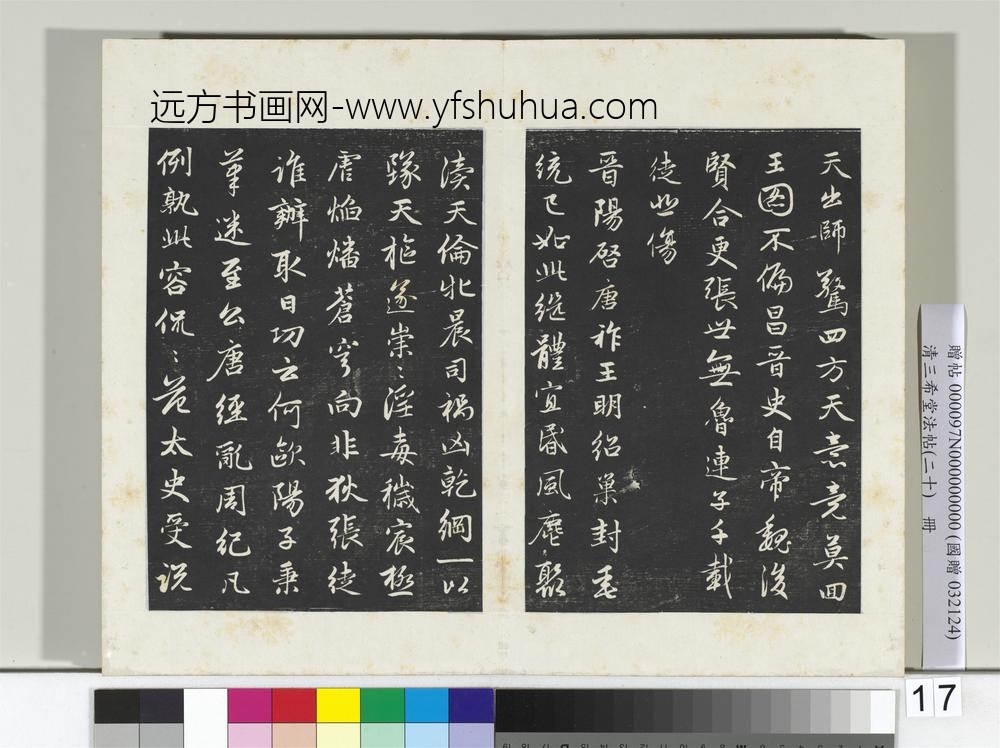 远方书画网-www.yfshuhua.com
天出師驚四方天意竟莫回
王圖不偏昌晋史自帝魏後
賢合更張世無魯連子千載
徒悲傷
晋陽啓唐祚王明紹巢封垂
統已如此繼體宜昏風麀聚
瀆天倫牝晨司禍凶乾綱一以
隊天樞遂崇〻淫毒穢宸極
虐焰燔蒼穹向非狄張徒
誰辦取日功云何歐陽子秉
筆迷至公唐經亂周紀凡
例孰此容侃〻范太史受説
贈帖 000097N000000000 (國贈 032124)
清三希堂法帖(二十) 冊
17